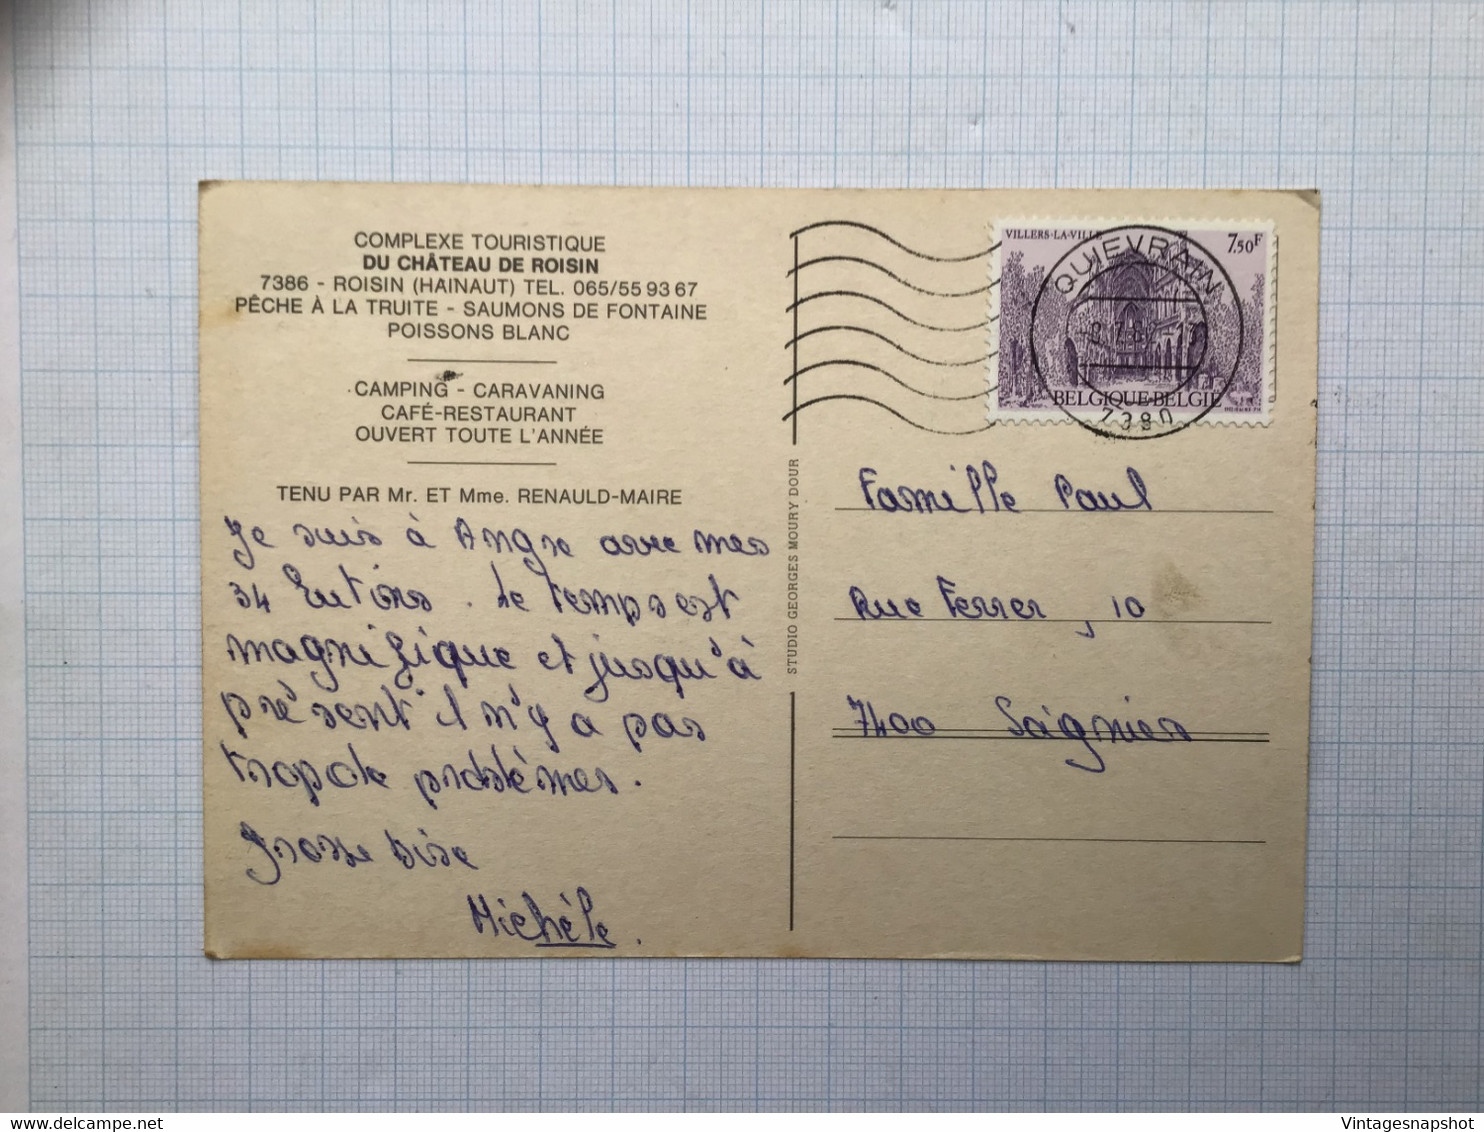 COMPLEXE TOURISTIQUE
DU CHÂTEAU DE ROISIN
7386 - ROISIN (HAINAUT) TEL. 065/55 93 67
PÊCHE À LA TRUITE - SAUMONS DE FONTAINE
POISSONS BLANC
CAMPING - CARAVANING
CAFÉ-RESTAURANT
OUVERT TOUTE L'ANNÉE
TENU PAR Mr. ET Mme. RENAULD-MAIRE
Je suis à Angre avec mes
34 lutins. Le temps est
magnifique et jusqu'à
présent il n'y a pas
trop de problèmes.
Grosse bise
Michèle.
STUDIO GEORGES MOURY DOUR
VILLERS-LA-VILLE 7,50F
BELGIQUE-BELGIË
QUIEVRAIN
7380
Famille Paul
Rue Ferrer, 10
7400 Soignies
delcampe.net
Vintagesnapshot